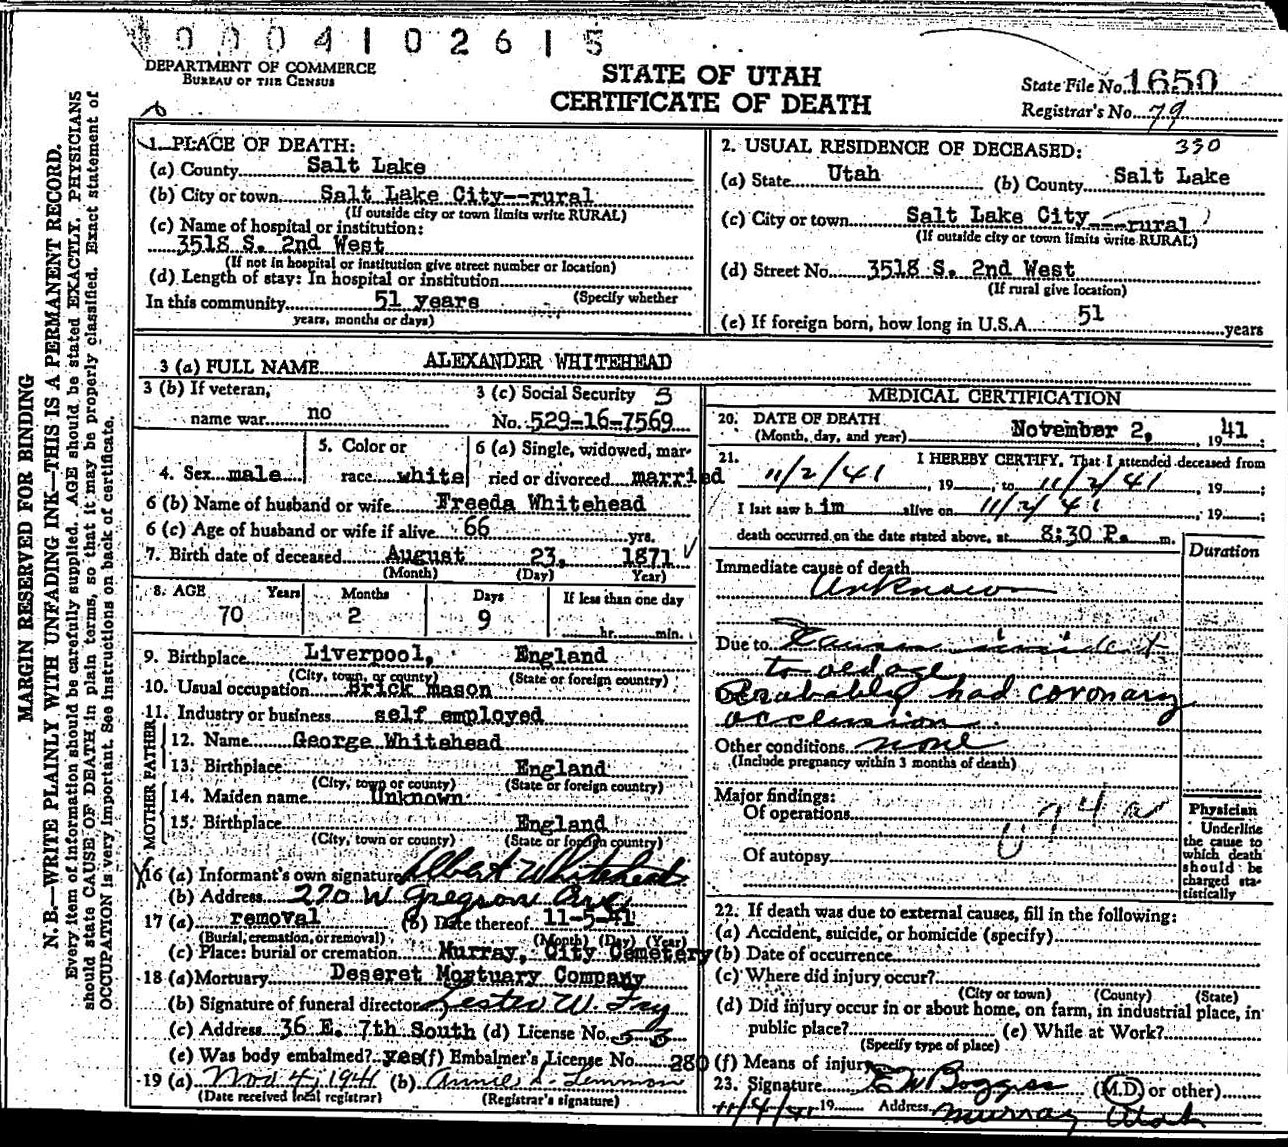 0004102615
DEPARTMENT OF COMMERCE
BUREAU OF THE CENSUS
STATE OF UTAH
CERTIFICATE OF DEATH
State File No. 1650
Registrar's No. 79
MARGIN RESERVED FOR BINDING
N. B.—WRITE PLAINLY WITH UNFADING INK—THIS IS A PERMANENT RECORD.
Every item of information should be carefully supplied. AGE should be stated EXACTLY. PHYSICIANS
should state CAUSE OF DEATH in plain terms, so that it may be properly classified. Exact statement of
OCCUPATION is very important. See instructions on back of certificate.
1. PLACE OF DEATH:
(a) County Salt Lake
(b) City or town Salt Lake City--rural
(If outside city or town limits write RURAL)
(c) Name of hospital or institution:
3518 S. 2nd West
(If not in hospital or institution give street number or location)
(d) Length of stay: In hospital or institution
In this community 51 years (Specify whether
years, months or days)
2. USUAL RESIDENCE OF DECEASED: 330
(a) State Utah (b) County Salt Lake
(c) City or town Salt Lake City---rural
(If outside city or town limits write RURAL)
(d) Street No. 3518 S. 2nd West
(If rural give location)
(e) If foreign born, how long in U.S.A. 51 years
3 (a) FULL NAME ALEXANDER WHITEHEAD
3 (b) If veteran,
name war no
3 (c) Social Security
No. 529-16-7569
4. Sex male
5. Color or
race white
6 (a) Single, widowed, mar-
ried or divorced married
6 (b) Name of husband or wife Freeda Whitehead
6 (c) Age of husband or wife if alive 66 yrs.
7. Birth date of deceased August 23, 1871
(Month) (Day) Year)
8. AGE Years Months Days If less than one day
70 2 9 hr. min.
9. Birthplace Liverpool, England
(City, town, or county) (State or foreign country)
10. Usual occupation Brick mason
11. Industry or business self employed
FATHER
12. Name George Whitehead
13. Birthplace England
(City, town or county) (State or foreign country)
MOTHER
14. Maiden name Unknown
15. Birthplace England
(City, town or county) (State or foreign country)
16 (a) Informant's own signature Albert Whitehead
(b) Address 270 W Gregson Ave
17 (a) removal (b) Date thereof 11-5-41
(Burial, cremation, or removal) (Month) (Day) (Year)
(c) Place: burial or cremation Murray, City Cemetery
18 (a) Mortuary Deseret Mortuary Company
(b) Signature of funeral director Lester W. Fry
(c) Address 36 E. 7th South (d) License No. 53
(e) Was body embalmed? yes (f) Embalmer's License No. 280
19 (a) Nov 4, 1941 (b) Annie S. Lemmon
(Date received local registrar) (Registrar's signature)
MEDICAL CERTIFICATION
20. DATE OF DEATH
(Month, day, and year) November 2, 1941
21. I HEREBY CERTIFY, That I attended deceased from
11/2/41, 19 , to 11/2/41, 19 ;
I last saw him alive on 11/2/41, 19 ;
death occurred on the date stated above, at 8:30 P. m.
Duration
Immediate cause of death
Unknown
Due to incident
to old age
Probably had coronary
occlusion.
Other conditions none
(Include pregnancy within 3 months of death)
Major findings:
Of operations
Of autopsy
Physician
Underline
the cause to
which death
should be
charged sta-
tistically
22. If death was due to external causes, fill in the following:
(a) Accident, suicide, or homicide (specify)
(b) Date of occurrence
(c) Where did injury occur?
(City or town) (County) (State)
(d) Did injury occur in or about home, on farm, in industrial place, in
public place? (e) While at Work?
(Specify type of place)
(f) Means of injury
23. Signature E W Boggess (M.D. or other)
11/4/41 19 Address Murray Utah